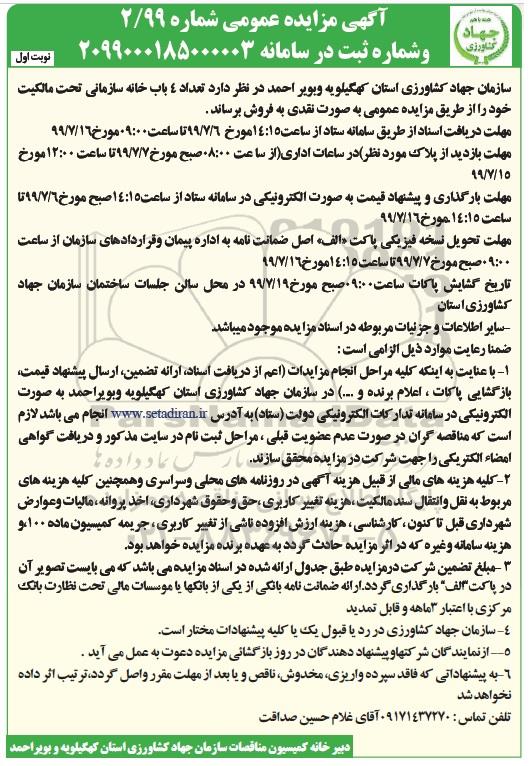 آگهی مزایده عمومی شماره ۲/۹۹
وشماره ثبت در سامانه ۲۰۹۹۰۰۰۱۸۵۰۰۰۰۰۳
همه با هم
جهاد
کشاورزی
نوبت اول
سازمان جهاد کشاورزی استان کهگیلویه وبویر احمد در نظر دارد تعداد ۴ باب خانه سازمانی تحت مالکیت
خود را از طریق مزایده عمومی به صورت نقدی به فروش برساند .
مهلت دریافت اسناد از طریق سامانه ستاد از ساعت۱۴:۱۵مورخ ۹۹/۷/۶ تا ساعت۰۹:۰۰مورخ۹۹/۷/۱۶
مهلت بازدید از پلاک مورد نظر)در ساعات اداری(از سا عت ۰۸:۰۰صبح مورخ۹۹/۷/۷تا ساعت ۱۲:۰۰مورخ
۹۹/۷/۱۵
مهلت بارگذاری و پیشنهاد قیمت به صورت الکترونیکی در سامانه ستاد از ساعت۱۴:۱۵صبح مورخ۹۹/۷/۶تا
ساعت ۱۴:۱۵.مورخ۹۹/۷/۱۶
مهلت تحویل نسخه فیزیکی پاکت «الف» اصل ضمانت نامه به اداره پیمان وقراردادهای سازمان از ساعت
۰۹:۰۰صبح مورخ۹۹/۷/۷تا ساعت۱۴:۱۵مورخ۹۹/۷/۱۶
تاریخ گشایش پاکات ساعت۰۹:۰۰صبح مورخ۹۹/۷/۱۹ در محل سالن جلسات ساختمان سازمان جهاد
کشاورزی استان
-سایر اطلاعات و جزئیات مربوطه در اسناد مزایده موجود میباشد.
ضمنا رعایت موارد ذیل الزامی است :
۱- با عنایت به اینکه کلیه مراحل انجام مزایدات (اعم از دریافت اسناد، ارائه تضمین، ارسال پیشنهاد قیمت،
بازگشایی پاکات ، اعلام برنده و ....) در سازمان جهاد کشاورزی استان کهگیلویه وبویراحمد به صورت
الکترونیکی در سامانه تدارکات الکترونیکی دولت (ستاد) به آدرس www.setadiran.ir انجام می باشد لازم
است که مناقصه گران در صورت عدم عضویت قبلی ، مراحل ثبت نام در سایت مذکور و دریافت گواهی
امضاء الکتریکی را جهت شرکت در مزایده محقق سازند.
۲-کلیه هزینه های مالی از قبیل هزینه آگهی در روزنامه های محلی وسراسری وهمچنین کلیه هزینه های
مربوط به نقل وانتقال سند مالکیت ، هزینه تغییر کاربری ،حق وحقوق شهرداری، اخذ پروانه ، مالیات وعوارض
شهرداری قبل تا کنون ، کارشناسی ، هزینه ارزش افزوده ناشی از تغییر کاربری ، جریمه کمیسیون ماده ۱۰۰،و
هزینه سامانه وغیره که در اثر مزایده حادث گردد به عهده برنده مزایده خواهد بود.
۳ -مبلغ تضمین شرکت درمزایده طبق جدول ارائه شده در اسناد مزایده می باشد که می بایست تصویر آن
در پاکت"الف" بارگذاری گردد.ارائه ضمانت نامه بانکی از یکی از بانکها یا موسسات مالی تحت نظارت بانک
مرکزی با اعتبار ۳ماهه و قابل تمدید
۴- سازمان جهاد کشاورزی در رد یا قبول یک یا کلیه پیشنهادات مختار است.
۵-- ازنمایندگان شرکتهاوپیشنهاد دهندگان در روز بازگشائی مزایده دعوت به عمل می آید .
۶-به پیشنهاداتی که فاقد سپرده واریزی، مخدوش، ناقص و یا بعد از مهلت مقرر واصل گردد،ترتیب اثر داده
نخواهد شد
تلفن تماس : ۰۹۱۷۱۴۳۷۲۷۰آقای غلام حسین صداقت
دبیر خانه کمیسیون مناقصات سازمان جهاد کشاورزی استان کهگیلویه و بویراحمد